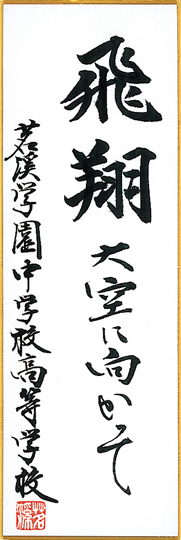 飛翔大空に向かって
茗溪学園中学校高等学校